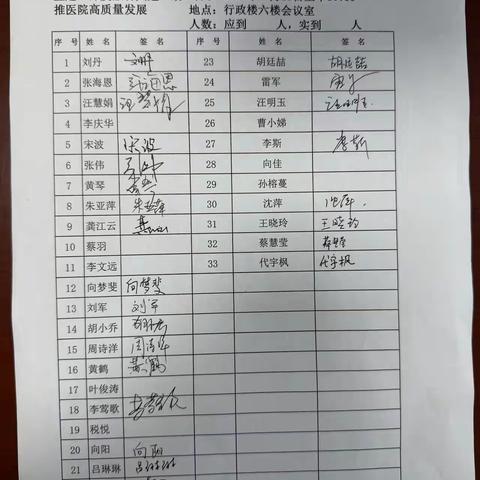 推医院高质量发展 地点：行政楼六楼会议室
人数：应到 人，实到 人
序 号 姓 名 签 名 序 号 姓 名 签 名
1 刘丹 刘丹 23 胡廷喆 胡廷喆
2 张海恩 张海恩 24 雷军
3 汪慧娟 汪慧娟 25 汪明玉 汪明玉
4 李庆华 26 曹小娣
5 宋波 宋波 27 李斯 李斯
6 张伟 28 向佳
7 黄琴 29 孙榕蔓
8 朱亚萍 朱亚萍 30 沈萍 沈萍
9 龚江云 31 王晓玲 王晓玲
10 蔡羽 32 蔡慧莹
11 李文远 33 代宇枫 代宇枫
12 向梦斐 向梦斐
13 刘军 刘军
14 胡小乔
15 周诗洋 周诗洋
16 黄鹤 黄鹤
17 叶俊涛
18 李莺歌
19 税悦
20 向阳 向阳
21 吕琳琳 吕琳琳